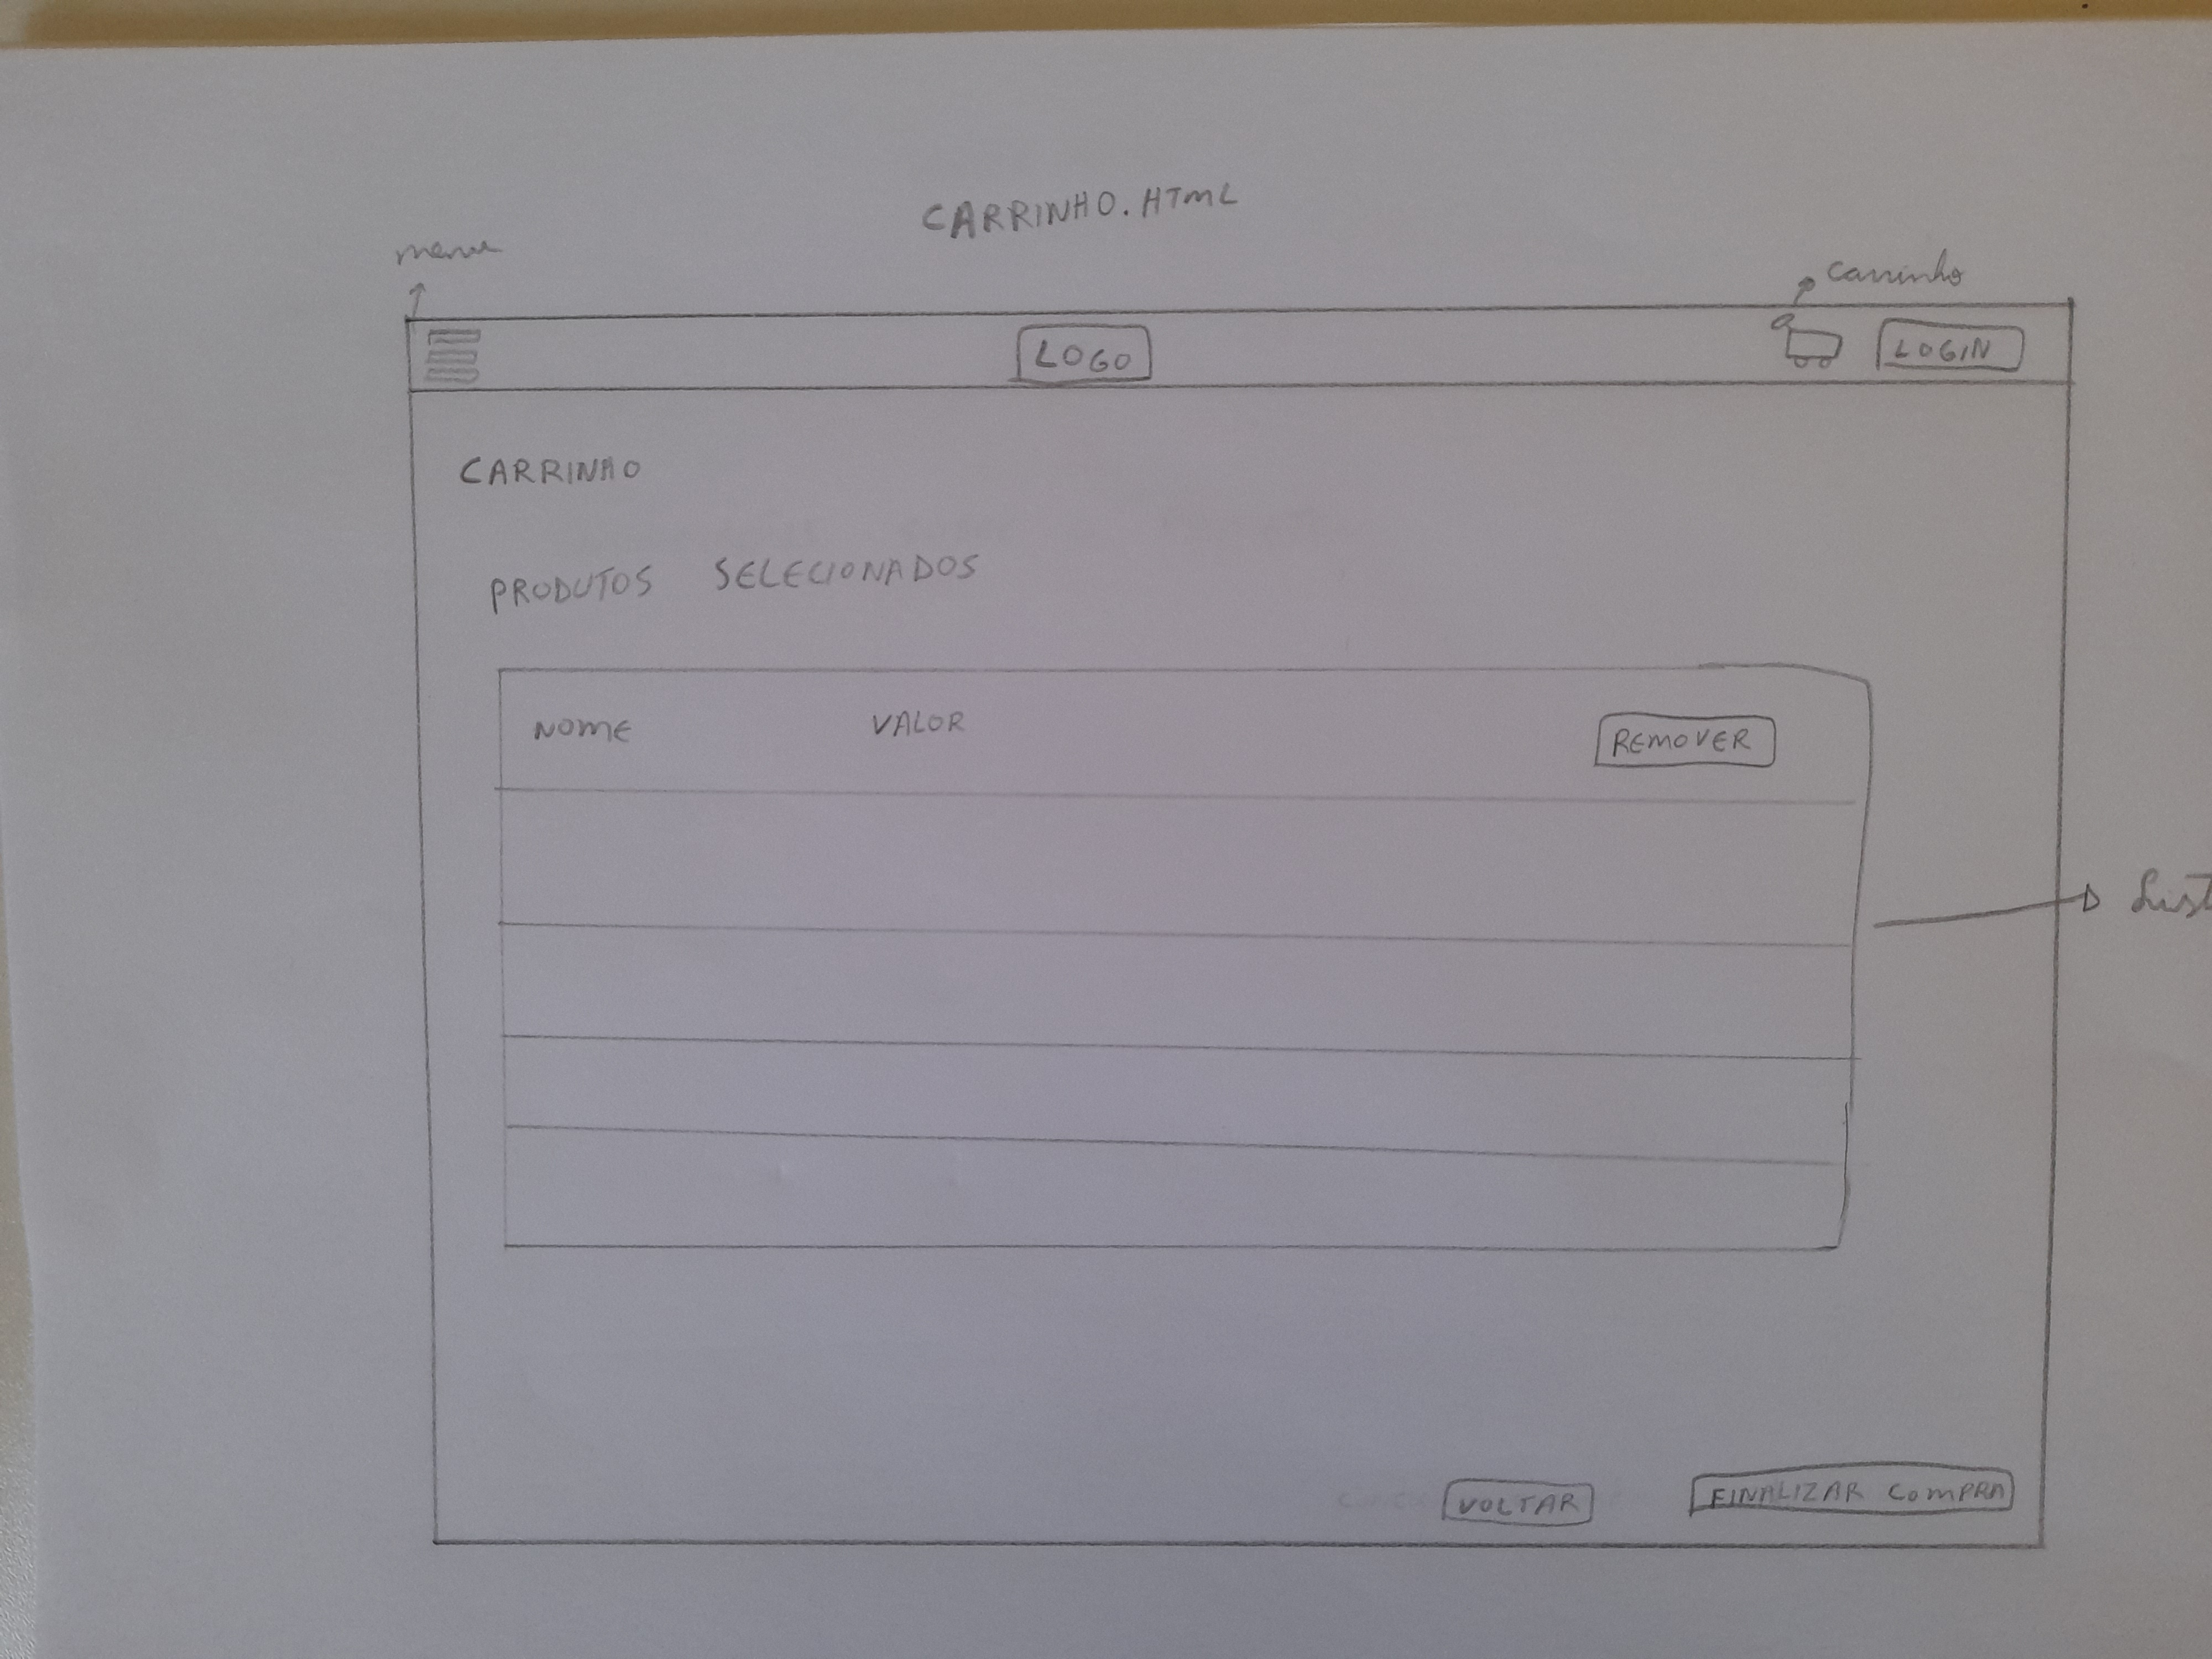 CARRINHO.HTML
menu
carrinho
LOGO
LOGIN
CARRINHO
PRODUTOS SELECIONADOS
NOME VALOR REMOVER
VOLTAR FINALIZAR COMPRA